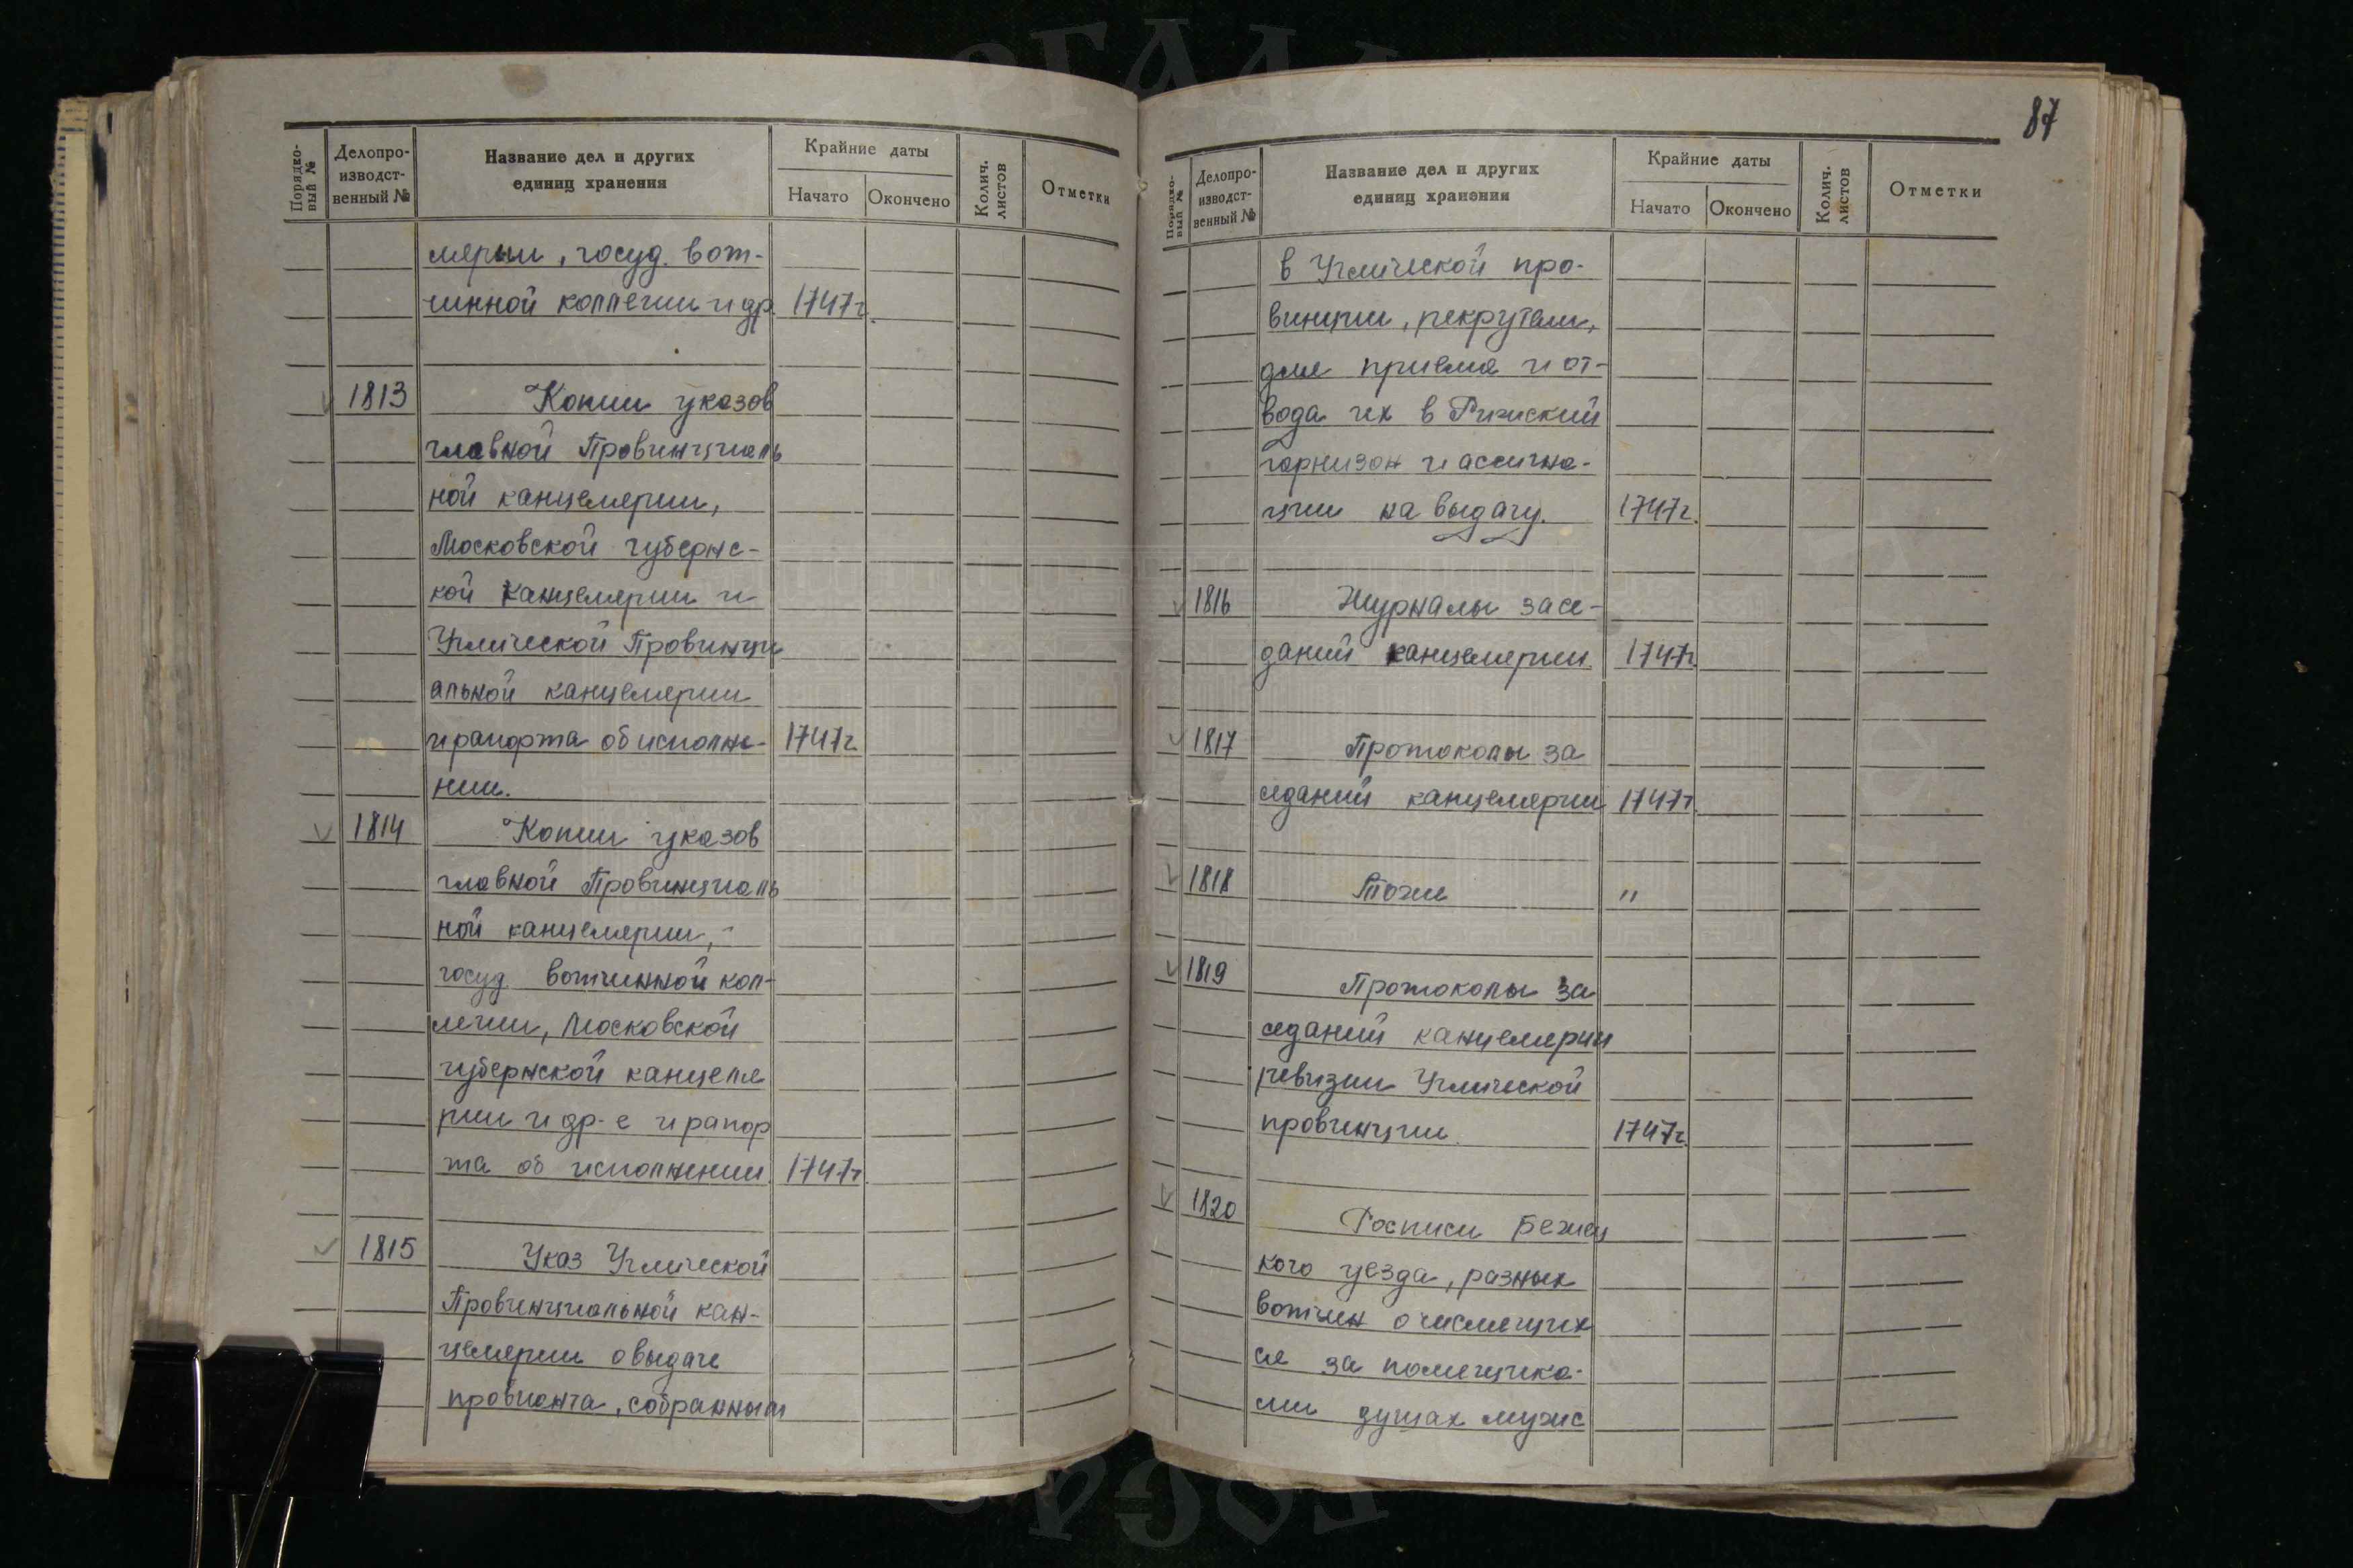 РГАДА
87
Порядко-
вый №
Делопро-
изводст-
венный №
Название дел и других
единиц хранения
Крайние даты
Начато
Окончено
Колич.
листов
Отметки
лярии, госуд. вот-
чинной коллегии и др. 1747г.
1813 Копии указов
главной Провинциаль
ной канцелярии,
Московской губернс-
кой канцелярии и
Угличской Провинци
альной канцелярии
и рапорта об исполне- 1747г
нии.
1814 Копии указов
главной Провинциаль
ной канцелярии,-
госуд. вотчинной кол-
легии, Московской
губернской канцеля
рии и др-е и рапор
та об исполнении. 1747г.
1815 Указ Угличской
Провинциальной кан-
целярии о выдаче
провианта, собранным
Порядко-
вый №
Делопро-
изводст-
венный №
Название дел и других
единиц хранения
Крайние даты
Начато
Окончено
Колич.
листов
Отметки
в Угличской про-
винции, рекрутам,
для приема и от-
вода их в Рижский
гарнизон и ассигна-
ции на выдачу. 1747г.
1816 Журналы засе-
даний канцелярии 1747г.
1817 Протоколы за
седаний канцелярии 1747г.
1818 Тоже "
1819 Протоколы за
седаний канцелярии
ревизии Угличской
провинции. 1747г.
1820 Росписи Бежец
кого уезда, разных
вотчин о числящих
ся за помещика-
ми душах мужс